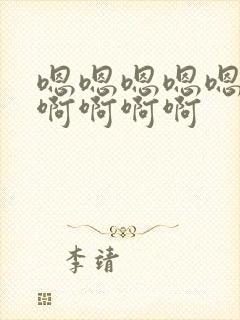 嗯嗯嗯嗯嗯
啊啊啊啊
李靖